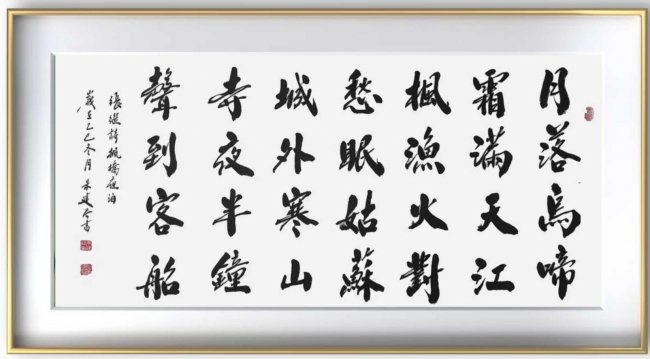 月落烏啼
霜滿天江
楓漁火對
愁眠姑蘇
城外寒山
寺夜半鐘
聲到客船
張繼詩楓橋夜泊
歲在乙巳冬月 朱建令書